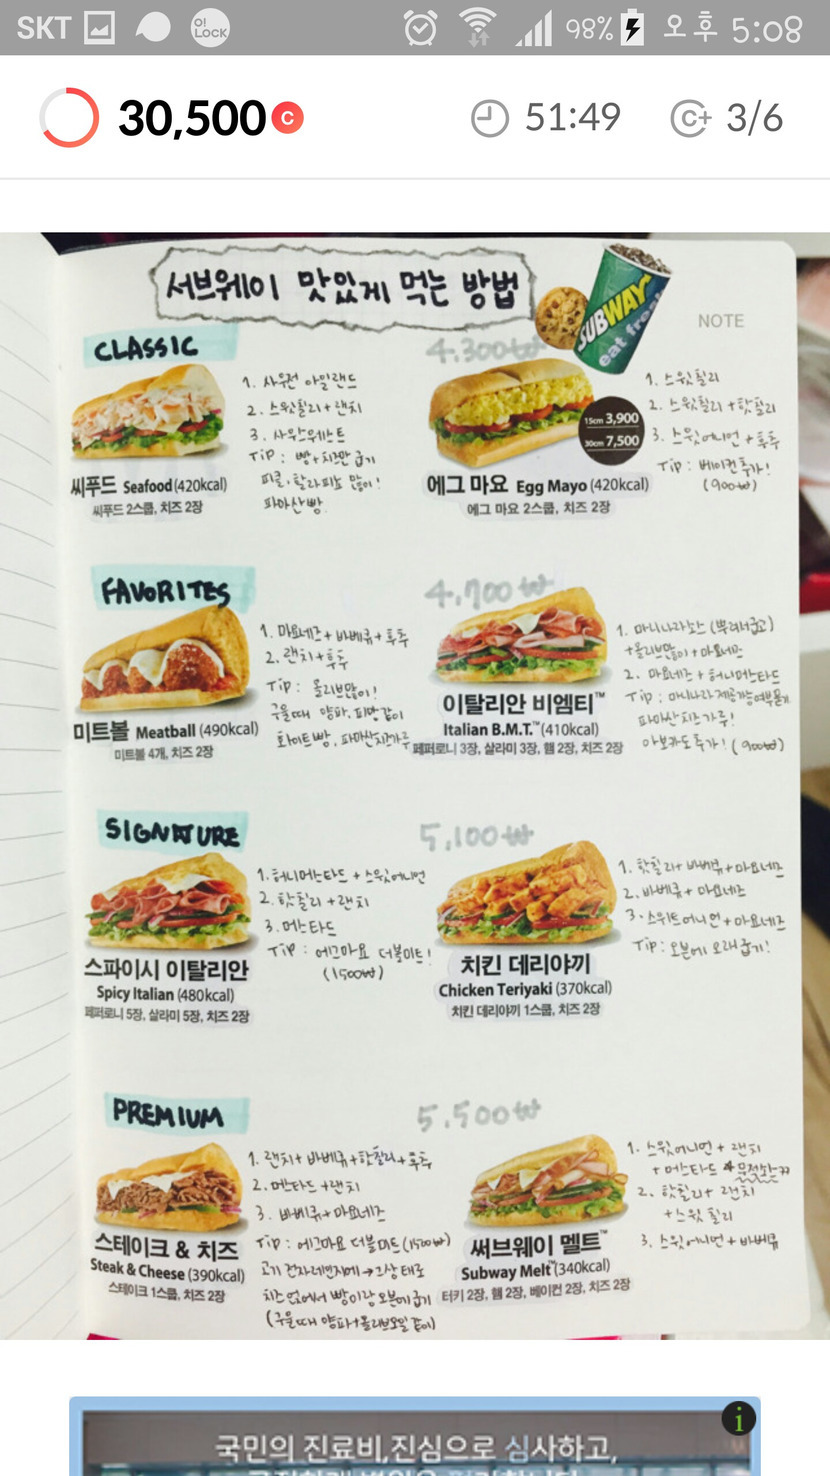 SKT O! LOCK 98% 오후 5:08
30,500 C 51:49 C+ 3/6
서브웨이 맛있게 먹는 방법
SUBWAY
eat fresh
NOTE
CLASSIC
4.300₩
1. 사우전 아일랜드
2. 스윗칠리+랜치
3. 사우스웨스트
TIP : 빵+치즈만 굽기
피클, 할라피뇨 많이!
파마산빵
씨푸드 Seafood (420kcal)
씨푸드 2스쿱, 치즈 2장
15cm 3,900
30cm 7,500
1. 스윗칠리
2. 스윗칠리+핫칠리
3. 스윗어니언+후추
TIP : 베이컨추가!
(900₩)
에그 마요 Egg Mayo (420kcal)
에그 마요 2스쿱, 치즈 2장
FAVORITES
4,700₩
1. 마요네즈+바베큐+후추
2. 랜치+후추
TIP : 올리브많이!
구울때 양파, 피망같이
화이트빵, 파마산치즈가루
미트볼 Meatball (490kcal)
미트볼 4개, 치즈 2장
1. 마니나라소스 (뿌려서굽고)
+올리브많이+마요네즈
2. 마요네즈+허니머스타드
TIP : 마니나라제공가능여부묻기
파마산치즈가루!
아보카도추가! (900₩)
이탈리안 비엠티™
Italian B.M.T.™ (410kcal)
페퍼로니 3장, 살라미 3장, 햄 2장, 치즈 2장
SIGNATURE
5,100₩
1. 허니머스타드+스윗어니언
2. 핫칠리+랜치
3. 머스타드
TIP : 에그마요 더블미트!
(1500₩)
스파이시 이탈리안
Spicy Italian (480kcal)
페퍼로니 5장, 살라미 5장, 치즈 2장
1. 핫칠리+바베큐+마요네즈
2. 바베큐+마요네즈
3. 스위트어니언+마요네즈
TIP : 오븐에 오래굽기!
치킨 데리야끼
Chicken Teriyaki (370kcal)
치킨 데리야끼 1스쿱, 치즈 2장
PREMIUM
5.500₩
1. 랜치+바베큐+핫칠리+후추
2. 머스타드+랜치
3. 바베큐+마요네즈
TIP : 에그마요 더블미트(1500₩)
고기 전자레인지에→그상태로
치즈얹어서 빵이랑 오븐에굽기
(구울때 양파+올리브오일같이)
스테이크 & 치즈
Steak & Cheese (390kcal)
스테이크 1스쿱, 치즈 2장
1. 스윗어니언+랜치
+머스타드 *무적소스
2. 핫칠리+랜치
+스윗칠리
3. 스윗어니언+바베큐
써브웨이 멜트™
Subway Melt™ (340kcal)
터키 2장, 햄 2장, 베이컨 2장, 치즈 2장
국민의 진료비,진심으로 심사하고,